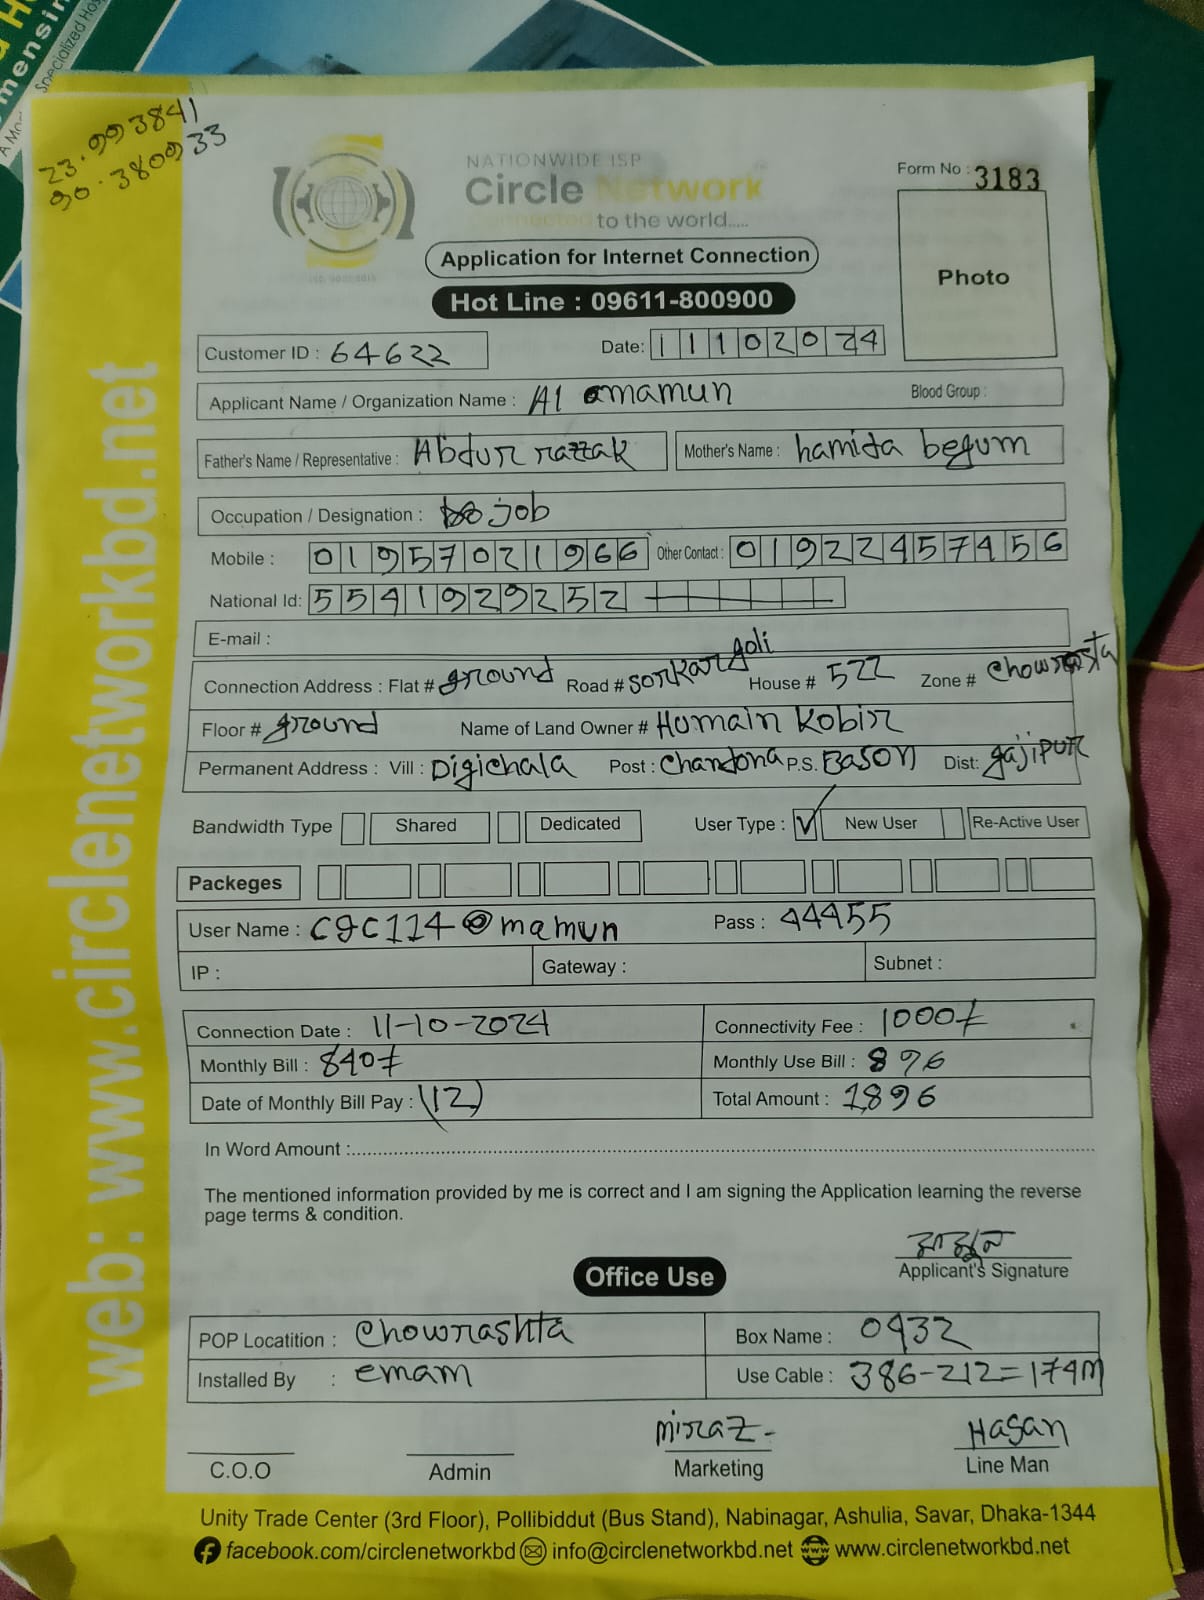 23.993841
90.380933
NATIONWIDE ISP
Circle Network
Connected to the world.....
Form No : 3183
Photo
Application for Internet Connection
Hot Line : 09611-800900
Customer ID : 64622
Date: 11102024
Applicant Name / Organization Name : Al mamun
Blood Group :
Father's Name / Representative : Abdur razzak
Mother's Name : hamida begum
Occupation / Designation : job
Mobile : 01957021966 Other Contact : 01922457456
National Id: 5541929252
E-mail :
Connection Address : Flat # ground Road # sorkar goli House # 522 Zone # Chowrasta
Floor # ground Name of Land Owner # Humain Kobir
Permanent Address : Vill : Digichala Post : Chandona P.S. Bason Dist: gajipur
Bandwidth Type Shared Dedicated User Type : New User Re-Active User
Packeges
User Name : cgc114@mamun Pass : 44455
IP : Gateway : Subnet :
Connection Date : 11-10-2024 Connectivity Fee : 1000/-
Monthly Bill : 840/- Monthly Use Bill : 896
Date of Monthly Bill Pay : (12) Total Amount : 1896
In Word Amount :
The mentioned information provided by me is correct and I am signing the Application learning the reverse
page terms & condition.
মামুন
Applicant's Signature
Office Use
POP Locatition : Chowrashta Box Name : 0932
Installed By : emam Use Cable : 386-212=174m
Miraz Hasan
C.O.O Admin Marketing Line Man
Unity Trade Center (3rd Floor), Pollibiddut (Bus Stand), Nabinagar, Ashulia, Savar, Dhaka-1344
facebook.com/circlenetworkbd info@circlenetworkbd.net www.circlenetworkbd.net
web: www.circlenetworkbd.net